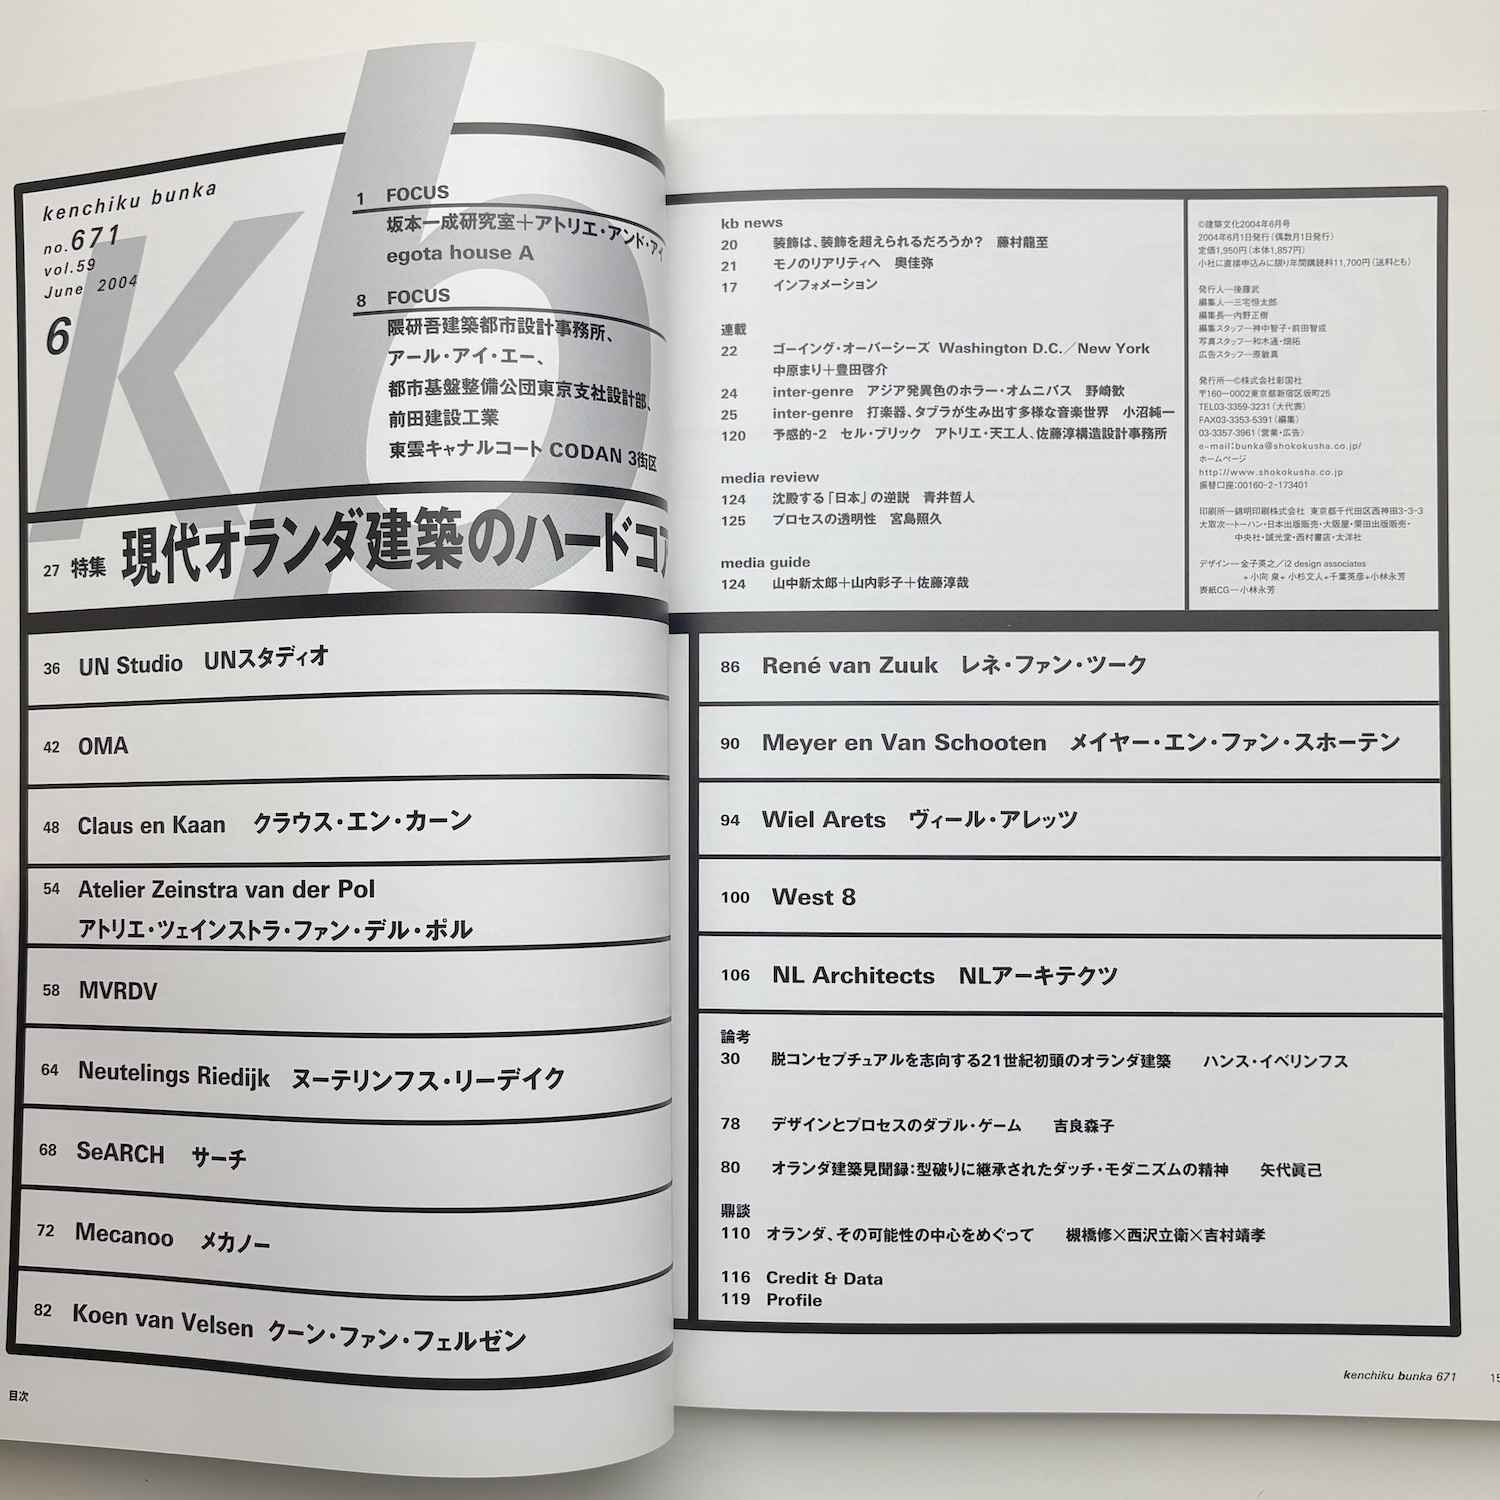 kenchiku bunka
no.671
vol.59
June 2004
6
kb
1 FOCUS
坂本一成研究室＋アトリエ・アンド・アイ
egota house A
8 FOCUS
隈研吾建築都市設計事務所、
アール・アイ・エー、
都市基盤整備公団東京支社設計部、
前田建設工業
東雲キャナルコート CODAN 3街区
27 特集 現代オランダ建築のハードコア
36 UN Studio UNスタディオ
42 OMA
48 Claus en Kaan クラウス・エン・カーン
54 Atelier Zeinstra van der Pol
アトリエ・ツェインストラ・ファン・デル・ポル
58 MVRDV
64 Neutelings Riedijk ヌーテリンフス・リーデイク
68 SeARCH サーチ
72 Mecanoo メカノー
82 Koen van Velsen クーン・ファン・フェルゼン
目次
kb news
20 装飾は、装飾を超えられるだろうか？ 藤村龍至
21 モノのリアリティへ 奥佳弥
17 インフォメーション
連載
22 ゴーイング・オーバーシーズ Washington D.C.／New York
中原まり＋豊田啓介
24 inter-genre アジア発異色のホラー・オムニバス 野崎歓
25 inter-genre 打楽器、タブラが生み出す多様な音楽世界 小沼純一
120 予感的-2 セル・ブリック アトリエ・天工人、佐藤淳構造設計事務所
media review
124 沈殿する「日本」の逆説 青井哲人
125 プロセスの透明性 宮島照久
media guide
124 山中新太郎＋山内彩子＋佐藤淳哉
©建築文化2004年6月号
2004年6月1日発行（偶数月1日発行）
定価1,950円（本体1,857円）
小社に直接申込みに限り年間購読料11,700円（送料とも）
発行人―後藤武
編集人―三宅恒太郎
編集長―内野正樹
編集スタッフ―神中智子・前田智成
写真スタッフ―和木通・畑拓
広告スタッフ―原敏真
発行所―©株式会社彰国社
〒160―0002東京都新宿区坂町25
TEL03-3359-3231（大代表）
FAX03-3353-5391（編集）
03-3357-3961（営業・広告）
e-mail：bunka@shokokusha.co.jp/
ホームページ
http://www.shokokusha.co.jp
振替口座：00160-2-173401
印刷所―錦明印刷株式会社 東京都千代田区西神田3-3-3
大取次―トーハン・日本出版販売・大阪屋・栗田出版販売・
中央社・誠光堂・西村書店・太洋社
デザイン―金子英之／i2 design associates
＋小向 泉＋小杉文人＋千葉英彦＋小林永芳
表紙CG―小林永芳
86 René van Zuuk レネ・ファン・ツーク
90 Meyer en Van Schooten メイヤー・エン・ファン・スホーテン
94 Wiel Arets ヴィール・アレッツ
100 West 8
106 NL Architects NLアーキテクツ
論考
30 脱コンセプチュアルを志向する21世紀初頭のオランダ建築 ハンス・イベリンフス
78 デザインとプロセスのダブル・ゲーム 吉良森子
80 オランダ建築見聞録：型破りに継承されたダッチ・モダニズムの精神 矢代眞己
鼎談
110 オランダ、その可能性の中心をめぐって 槻橋修×西沢立衛×吉村靖孝
116 Credit & Data
119 Profile
kenchiku bunka 671 15